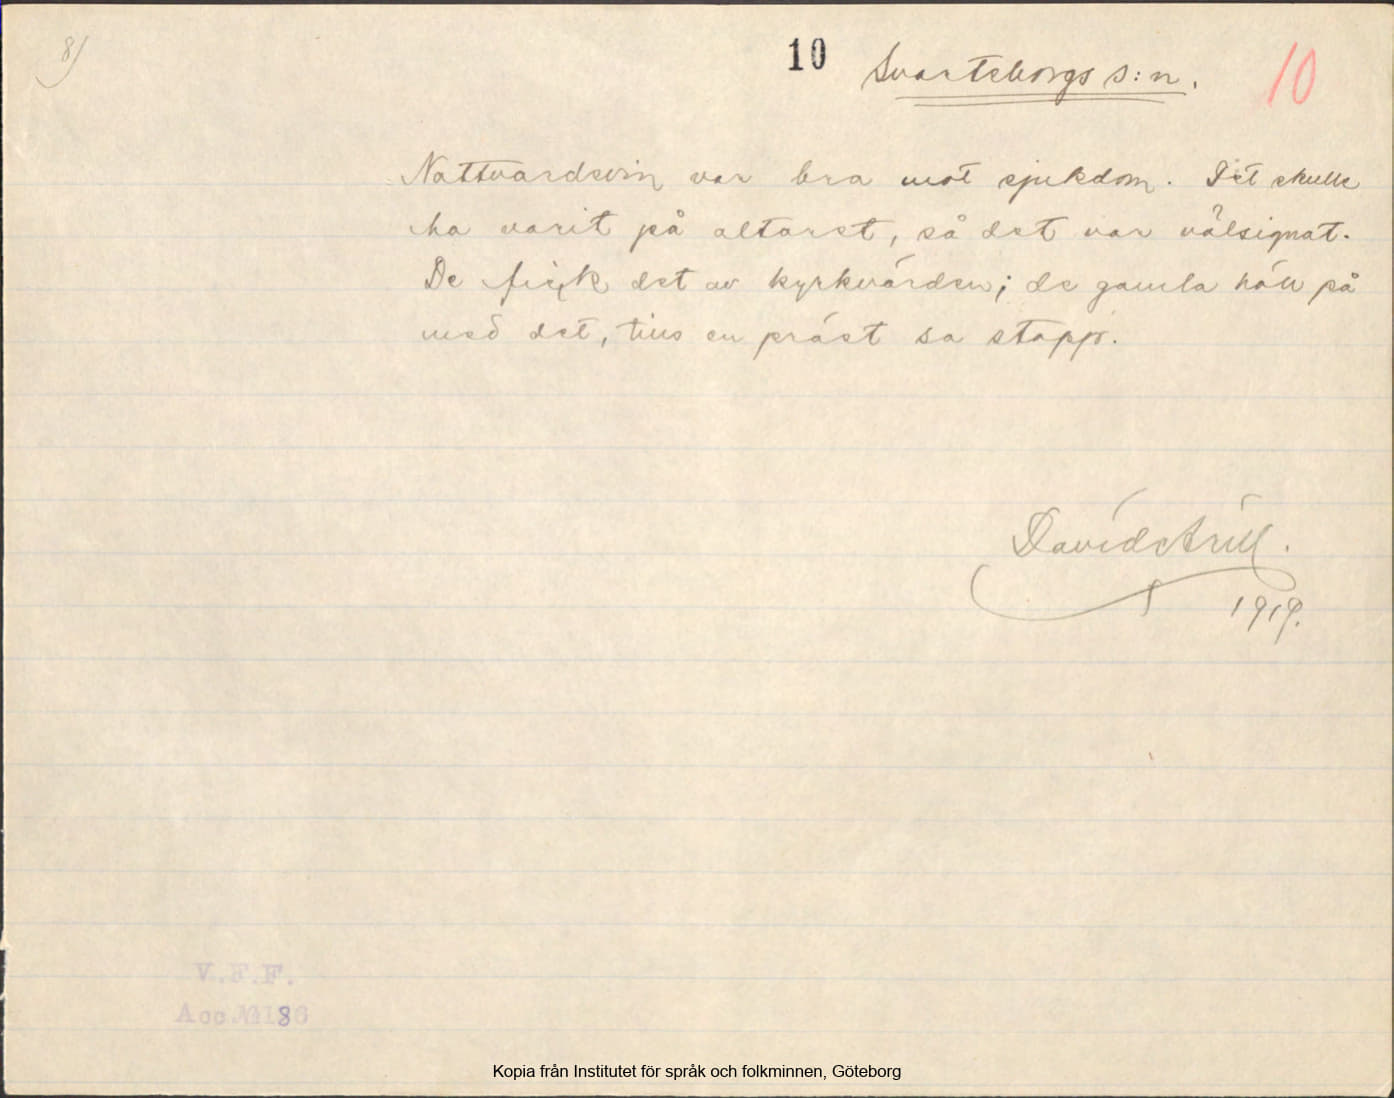 8)
10 Svarteborgs s:n. 10
Nattvardsvin var bra mot sjukdom. Det skulle
ha varit på altaret, så det var välsignat.
De fick det av kyrkvärden; de gamla höll på
med det, tills en präst sa stopp.
David Arill.
1919.
V.F.F.
Acc № 186
Kopia från Institutet för språk och folkminnen, Göteborg